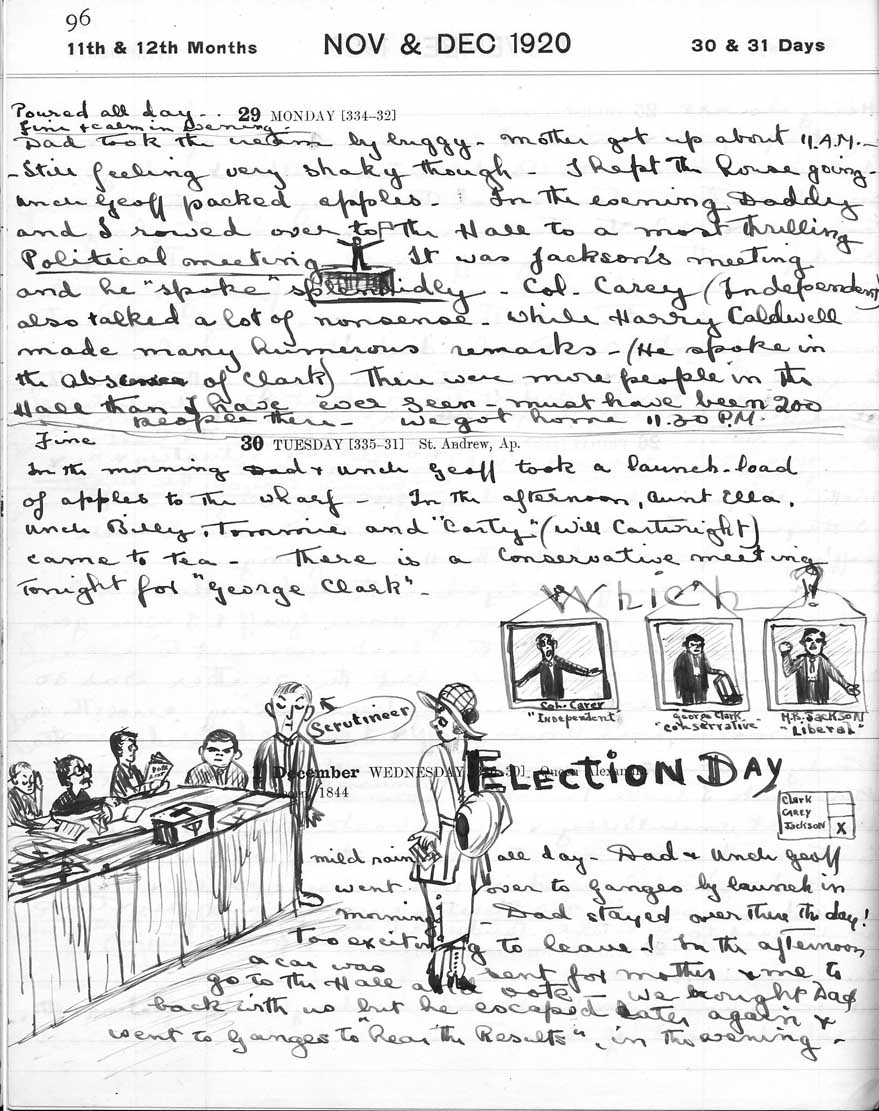 96
11th & 12th Months NOV & DEC 1920 30 & 31 Days
Poured all day.. 29 MONDAY [334-32]
Fine & calm in Evening.
Dad took the cream by buggy - Mother got up about 11. A.M. -
- Still feeling very shaky though - I kept the house going -
Uncle Geoff packed apples - In the evening Daddy
and I rowed over to the Hall to a most thrilling
Political meeting It was Jackson's meeting
and he "spoke" splendidly - Col. Carey (Independent)
also talked a lot of nonsense - While Harry Caldwell
made many humerous remarks - (He spoke in
the absence of Clark) There were more people in the
Hall than I have ever seen - must have been 200
people there - we got home 11.30 P.M.
Fine 30 TUESDAY [335-31] St. Andrew, Ap.
In the morning Dad & Uncle Geoff took a launch-load
of apples to the wharf - In the afternoon, Aunt Ella,
Uncle Billy, Tommie and "Carty" (Will Cartwright)
came to tea - There is a Conservative meeting
Tonight for "George Clark" -
Which!
Col. Carey
"Independent"
George Clark
"Conservative"
M.B. JACKSON
"Liberal"
Scrutineer
1 December WEDNESDAY
1844
ELECTION DAY
Clark
CAREY
JACKSON X
mild rain all day - Dad & Uncle Geoff
went over to Ganges by launch in
morning Dad stayed over there the day!
Too exciting to leave! In the afternoon
a car was sent for mother & me to
go to the Hall and vote - We brought Dad
back with us but he escaped later again &
went to Ganges to "Hear the Results", in the evening -